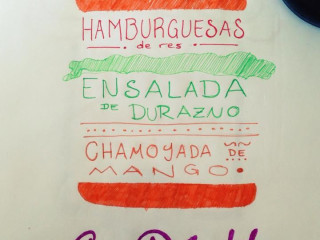 HAMBURGUESAS
de res
ENSALADA
DE DURAZNO
CHAMOYADA DE
MANGO